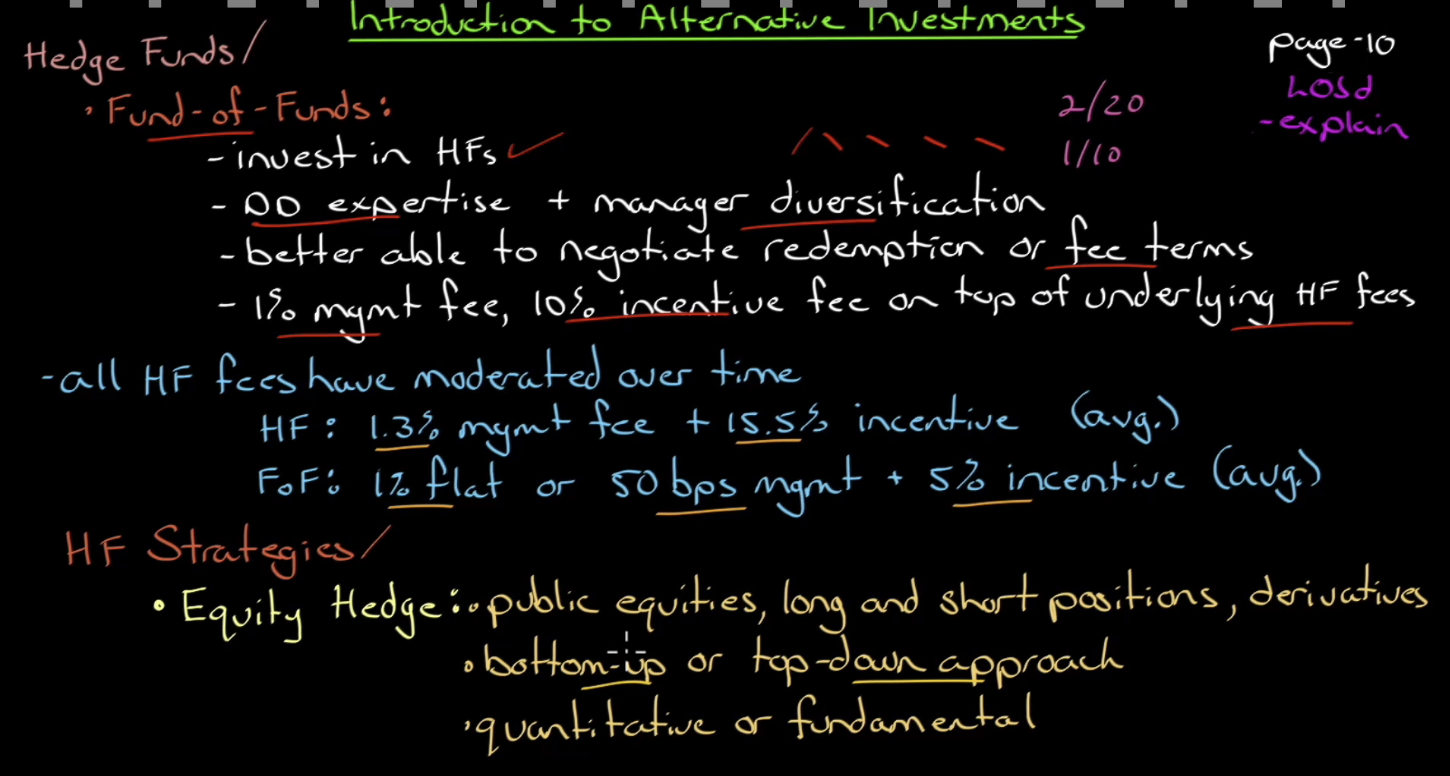 Introduction to Alternative Investments
page-10
LOSd
-explain
Hedge Funds/
• Fund-of-Funds:
2/20
1/10
- invest in HFs ✓
- DD expertise + manager diversification
- better able to negotiate redemption or fee terms
- 1% mgmt fee, 10% incentive fee on top of underlying HF fees
- all HF fees have moderated over time
HF: 1.3% mgmt fee + 15.5% incentive (avg.)
FoF: 1% flat or 50 bps mgmt + 5% incentive (avg.)
HF Strategies/
• Equity Hedge: • public equities, long and short positions, derivatives
• bottom-up or top-down approach
• quantitative or fundamental